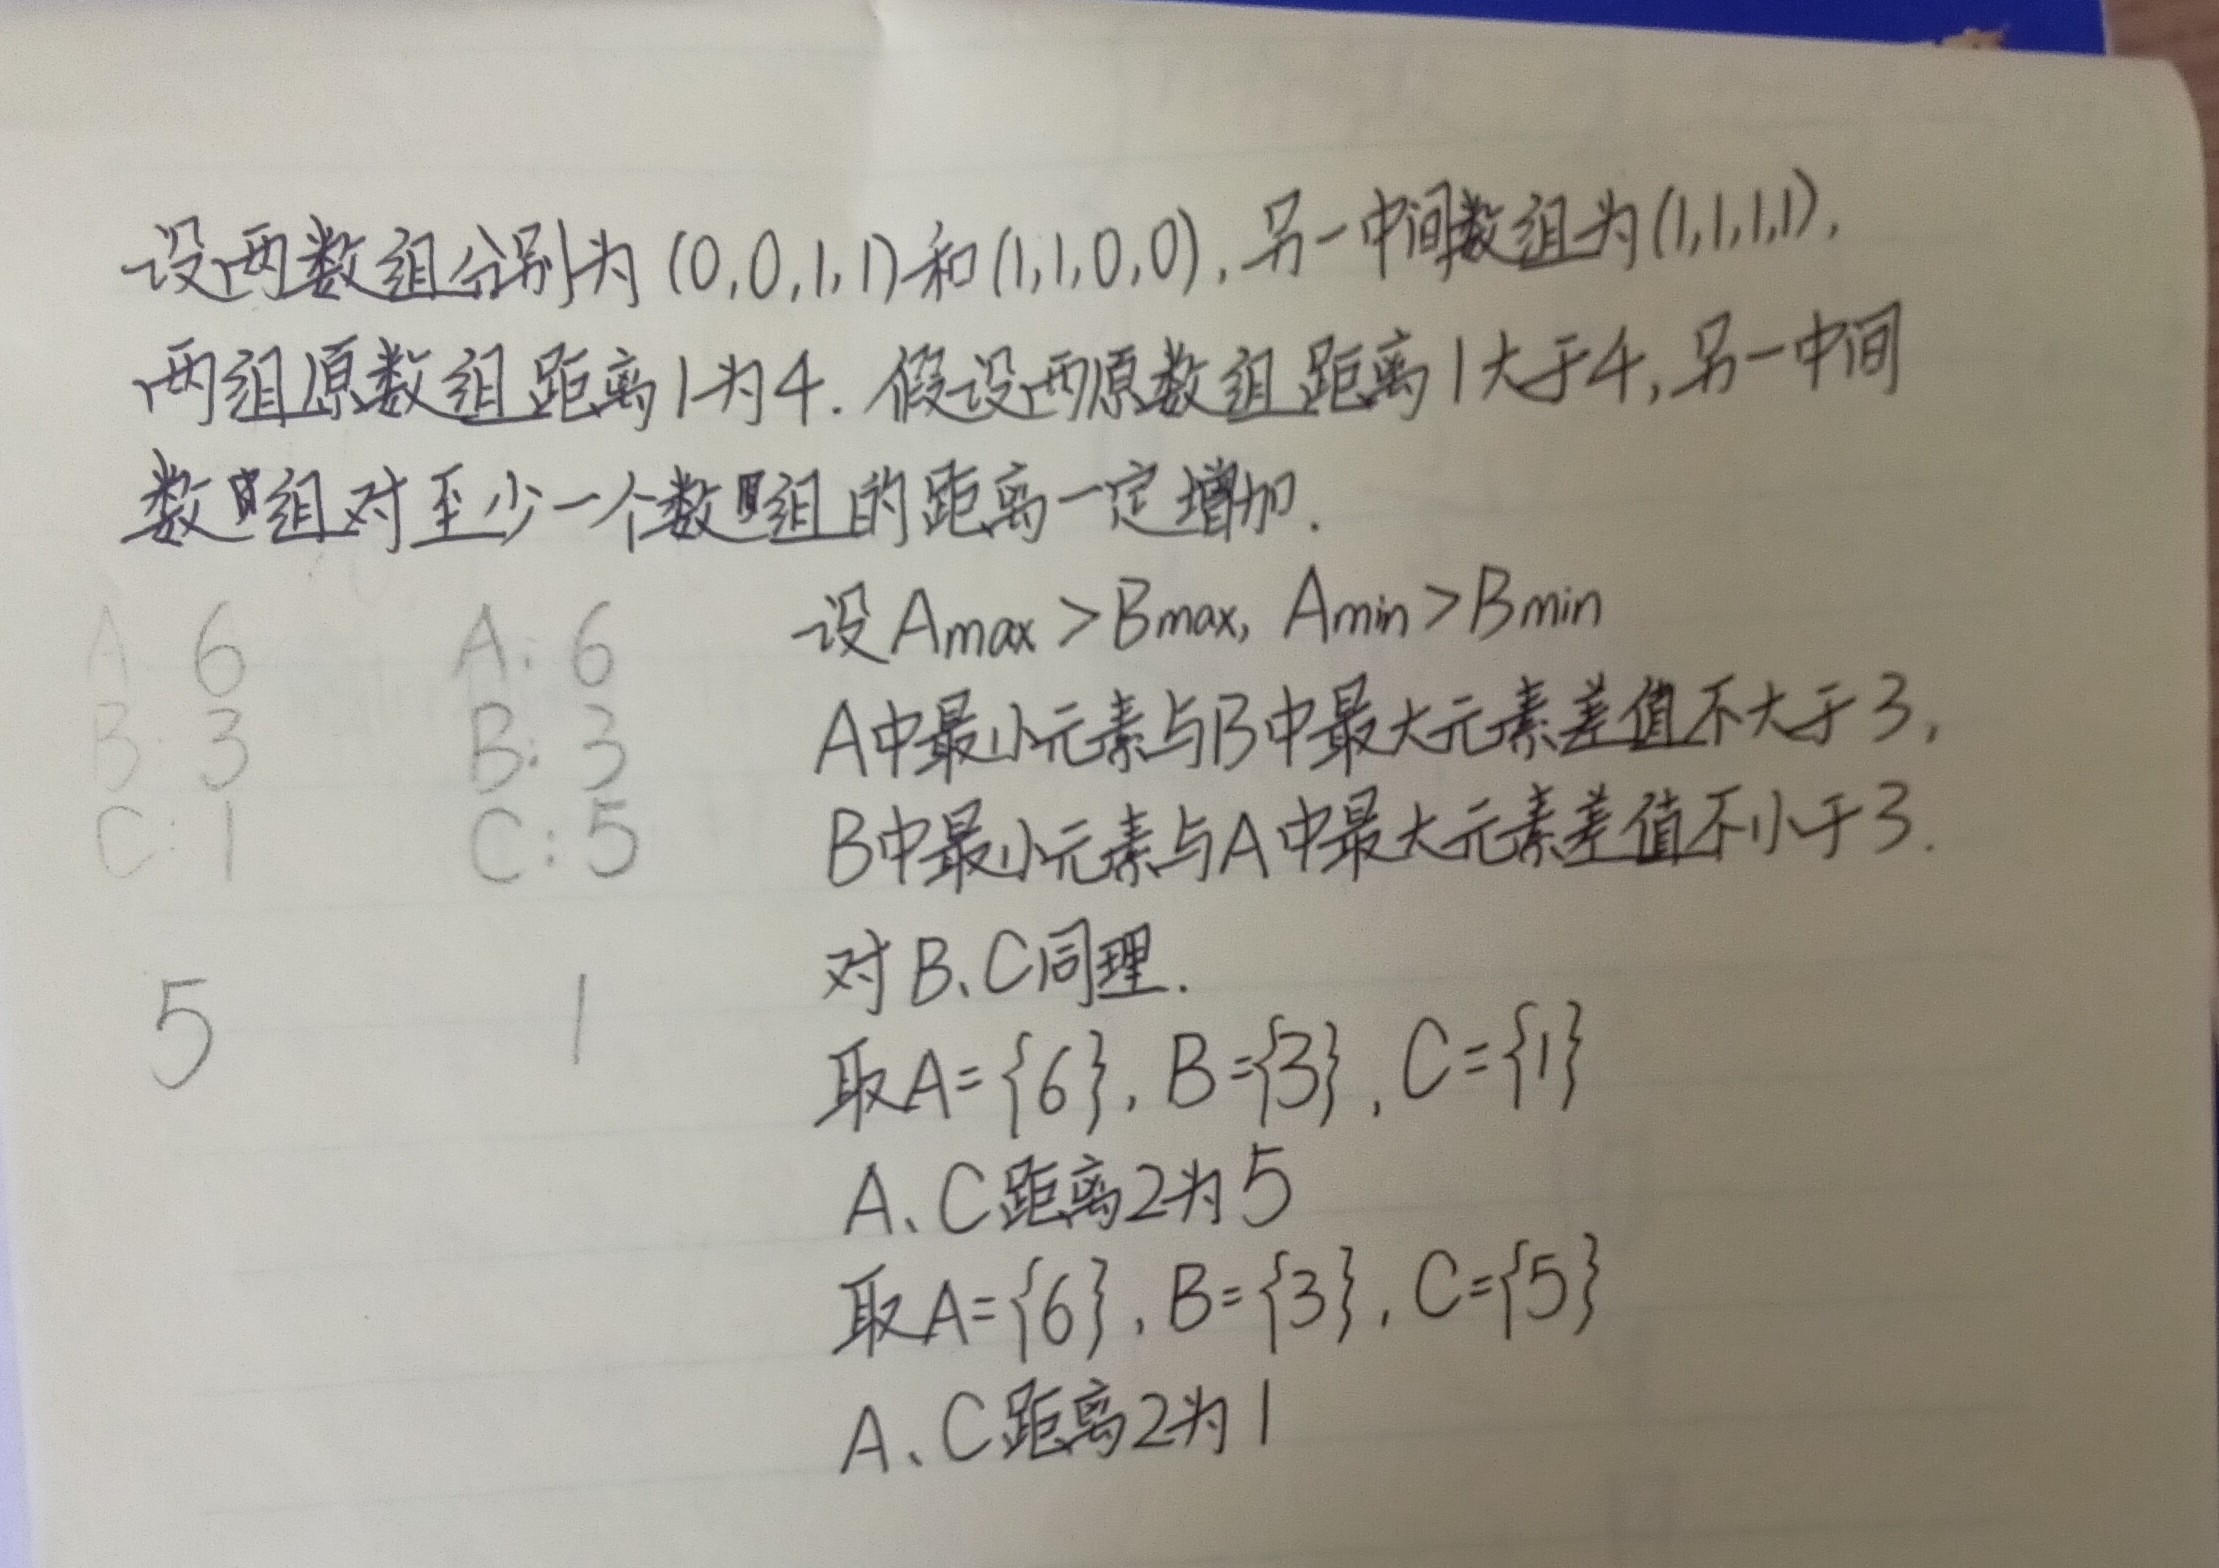 设两数组分别为(0,0,1,1)和(1,1,0,0),另一中间数组为(1,1,1,1),
两组原数组距离1为4.假设两原数组距离1大于4,另一中间
数组对至少一个数组的距离一定增加.
A 6
B: 3
C: 1
5
A: 6
B: 3
C: 5
1
设Amax>Bmax, Amin>Bmin
A中最小元素与B中最大元素差值不大于3,
B中最小元素与A中最大元素差值不小于3.
对B、C同理.
取A={6},B={3},C={1}
A、C距离2为5
取A={6},B={3},C={5}
A、C距离2为1